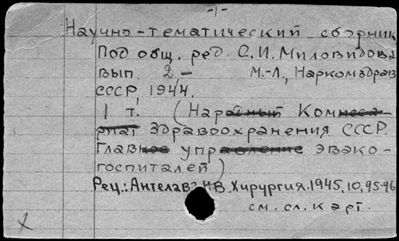 -1-
Научно-тематический сборник
Под общ. ред. С.И. Миловидова
вып. 2,- М.-Л., Наркомздрав
СССР, 1944.
1 т. (Народный Комисса-
риат Здравоохранения СССР.
Главное управление эвако-
госпиталей)
Рец.: Ангелав Н.В. Хирургия. 1945, 10, 95-96
см. сл. карт.